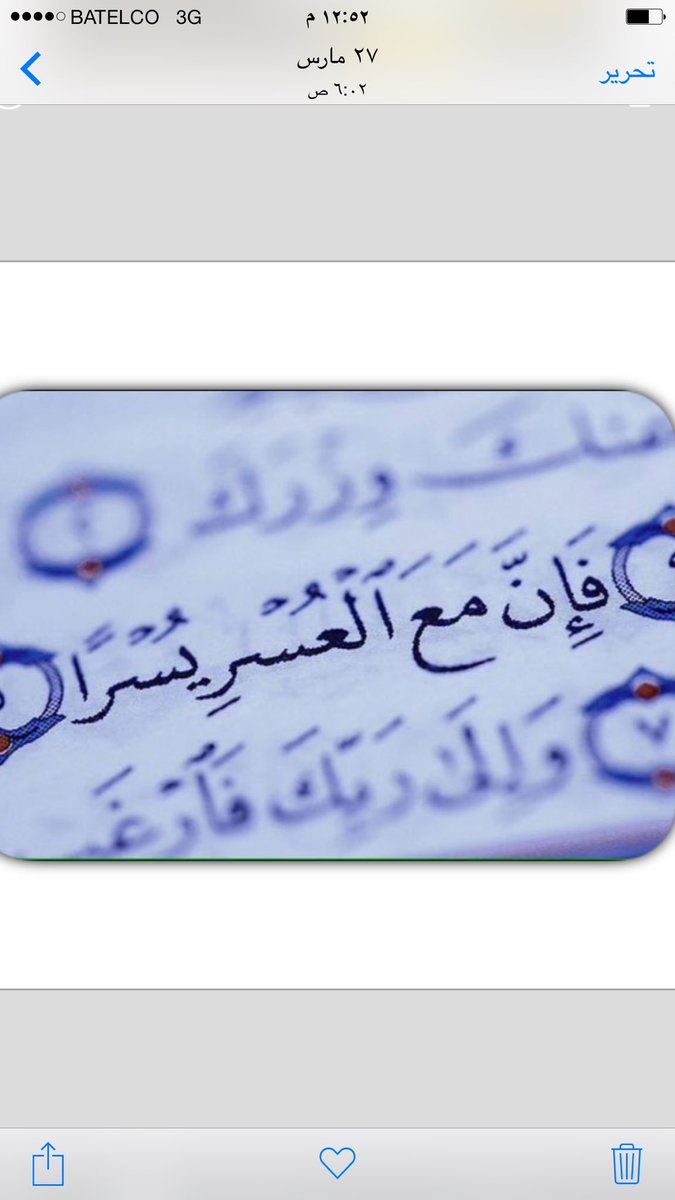 BATELCO 3G ١٢:٥٢ م
٢٧ مارس
٦:٠٢ ص
تحرير
عنك وِزْرَكَ
فَإِنَّ مَعَ ٱلْعُسْرِ يُسْرًا
٧ وَإِلَىٰ رَبِّكَ فَٱرْغَب